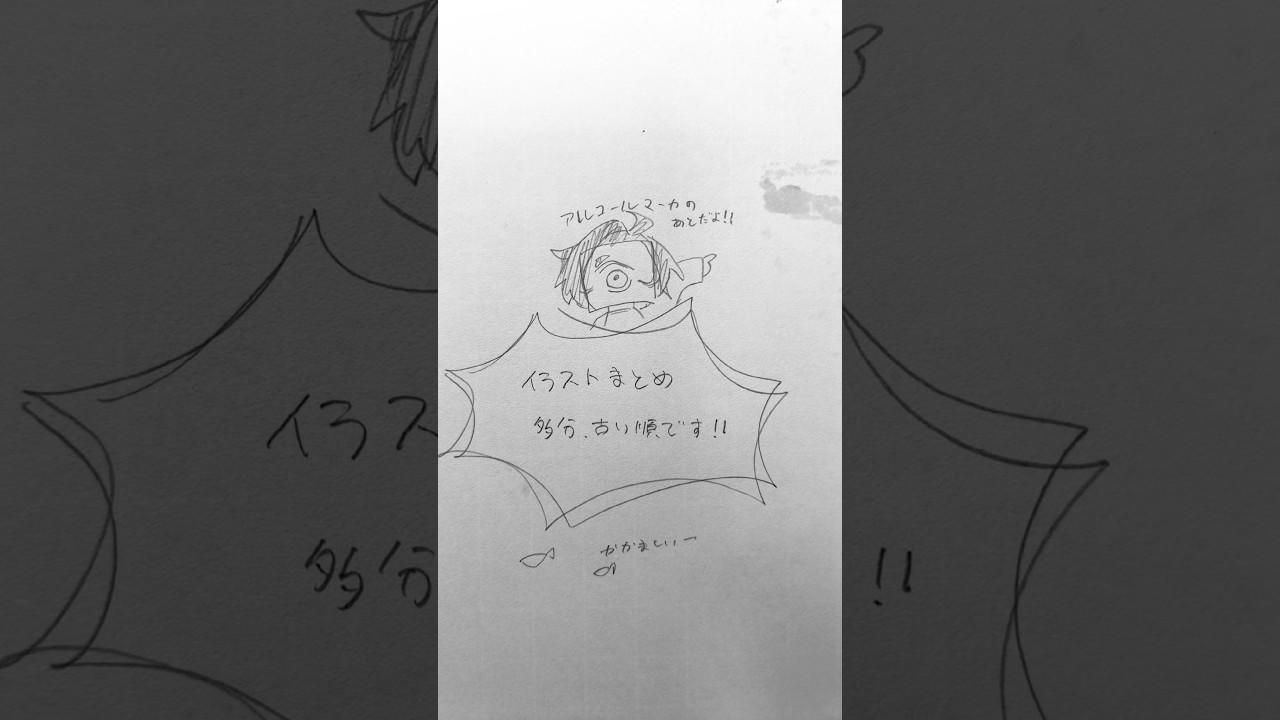 アルコールマーカーの
あとだよ!!
イラストまとめ
多分、古い順です!!
やかましいー